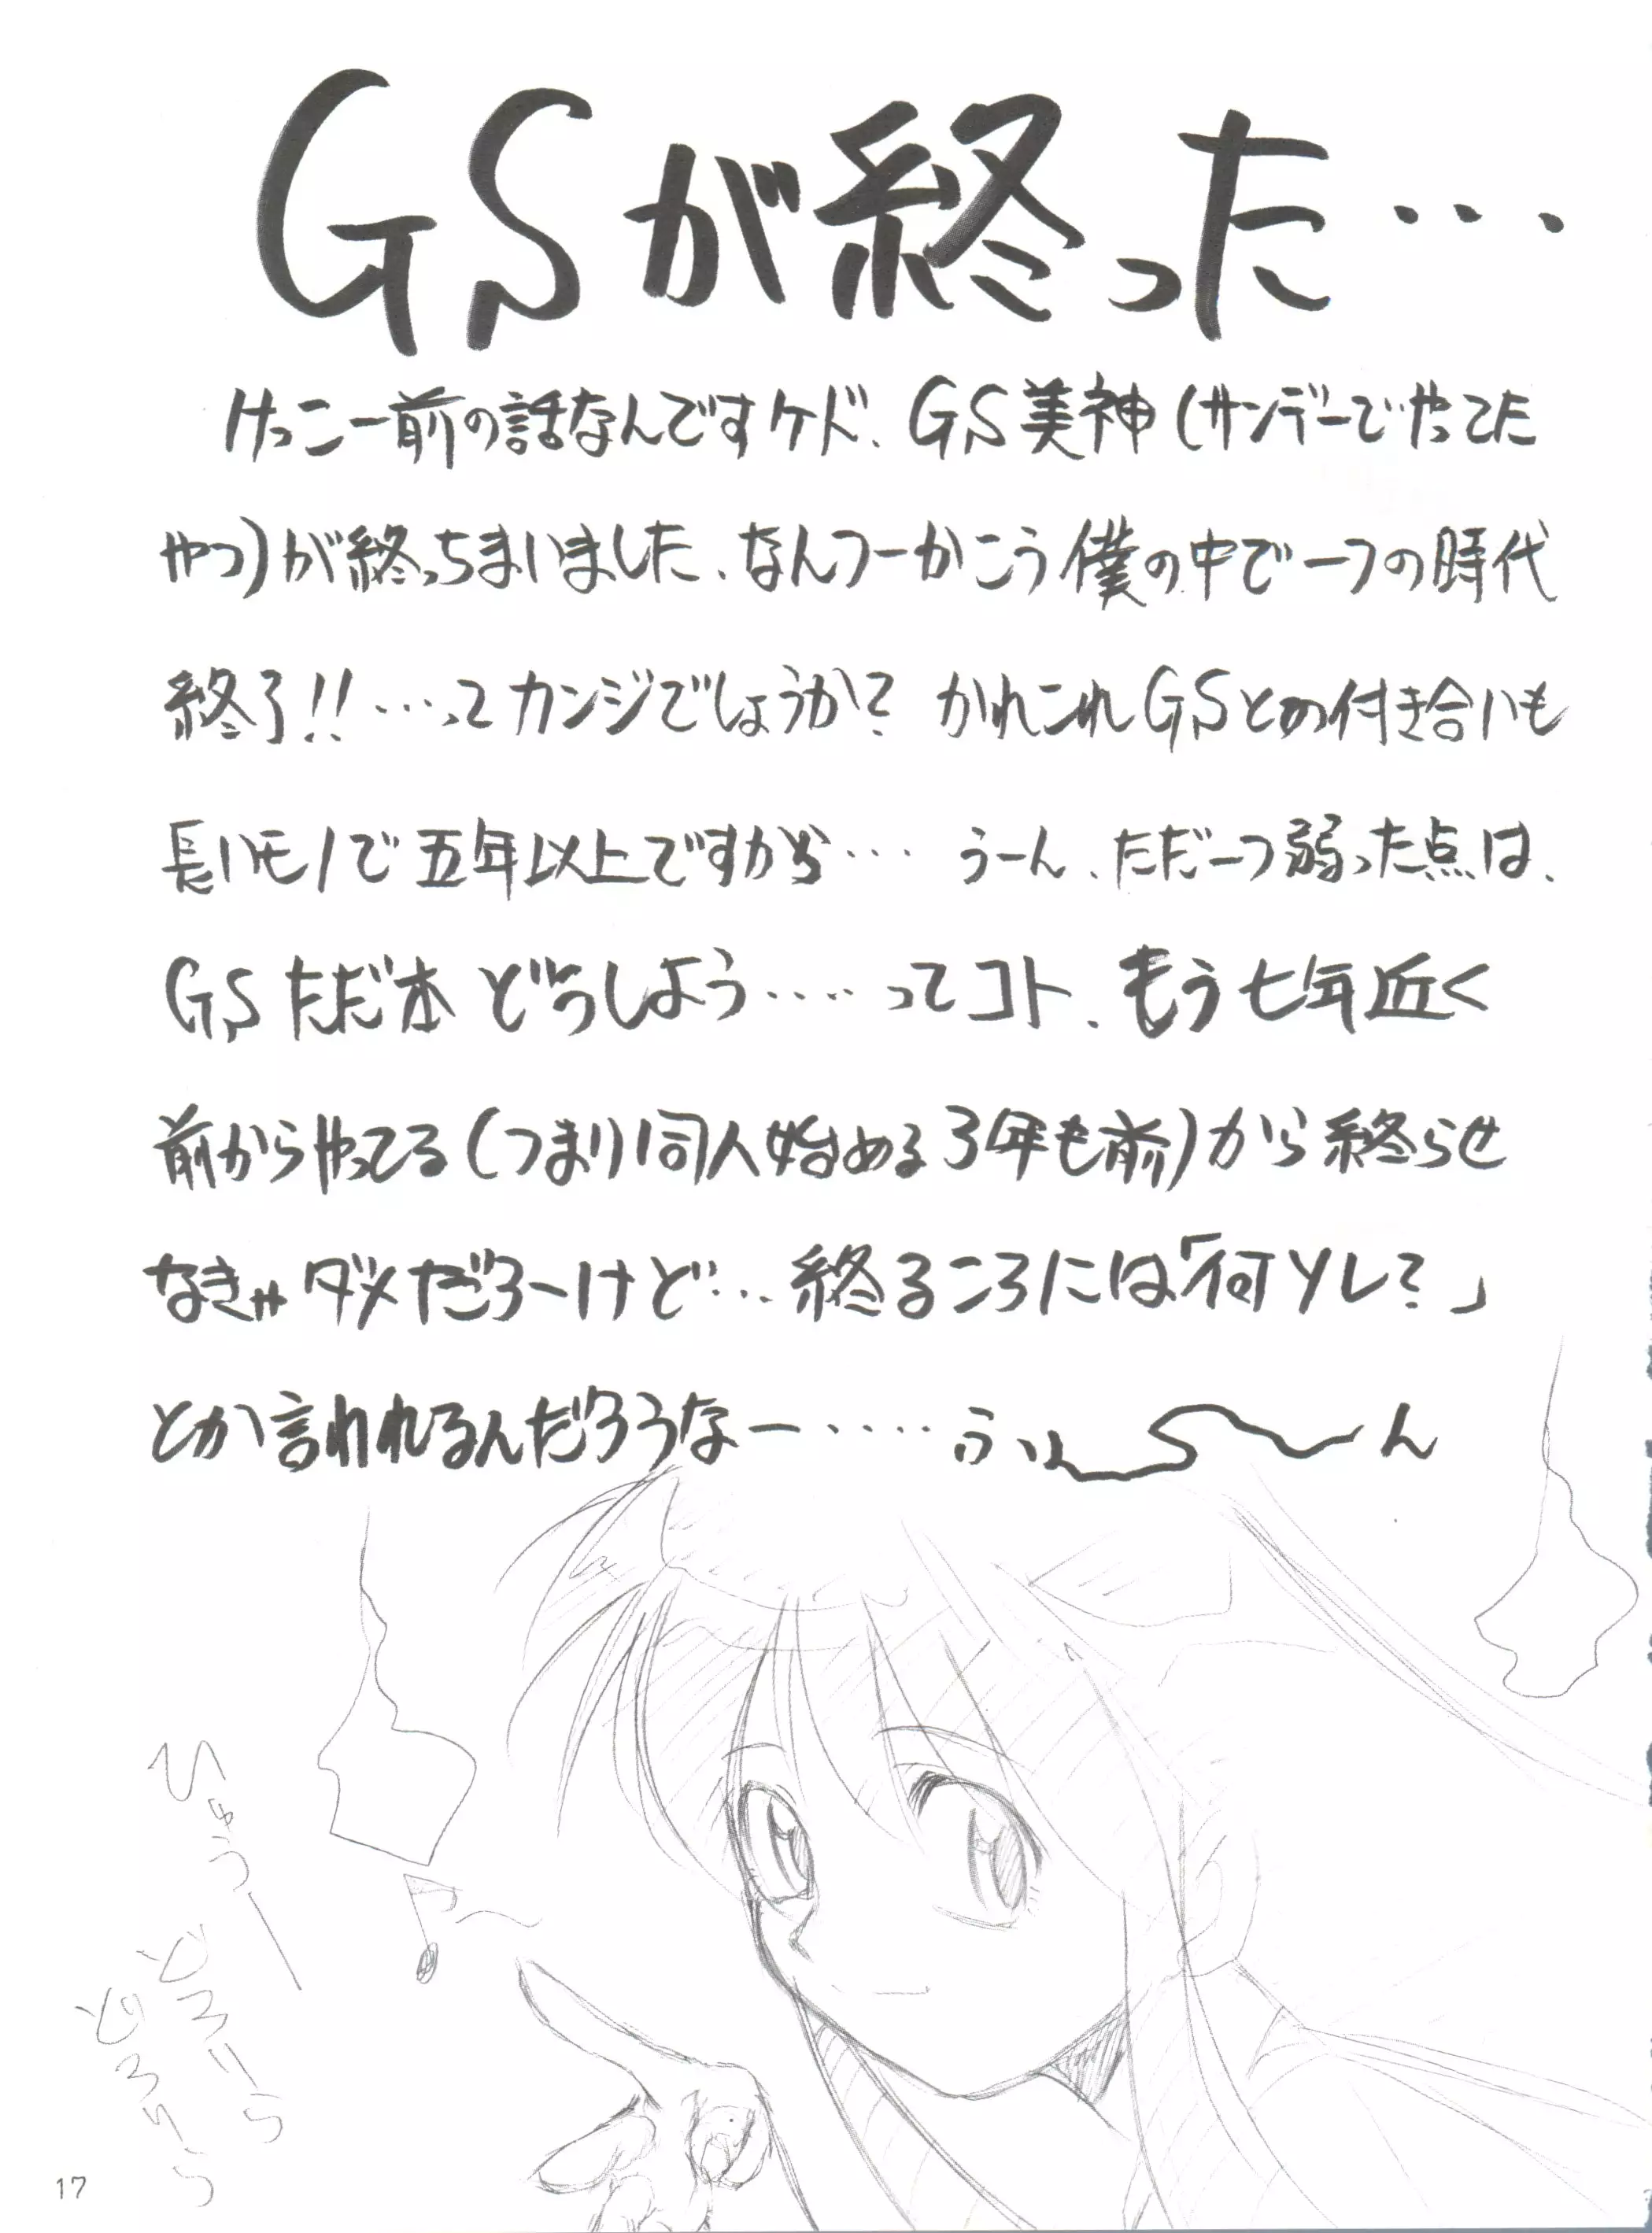 GSが終った…
けっこー前の話なんですケド、GS美神(サンデーでやってた
やつ)が終っちまいました、なんつーかこう僕の中で一つの時代
終了!!…ってカンジでしょうか? かれこれGSとの付き合いも
長いモノで五年以上ですから… うーん、ただ一つ弱った点は、
GSただ本どうしよう……ってコト、もう七年近く
前からやってる(つまり同人始める3年も前)から終らせ
なきゃダメだろーけど…終るころには「何ソレ?」
とか言われるんだろうなー…… ふぃ〜〜ん
ひゅうー
どろりろ
どろりろ
17